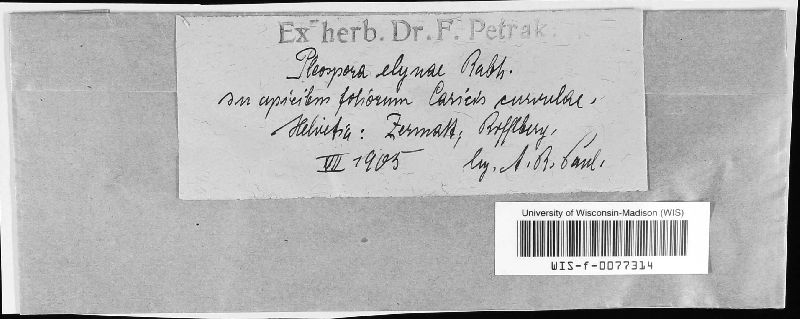 Ex herb. Dr. F. Petrak.
Pleospora elynae Rabh.
in apicibus foliorum Caricis curvulae.
Helvetia: Zermatt, Rifflberg.
VIII 1905 leg. A. R. Paul.
University of Wisconsin-Madison (WIS)
WIS-f-0077314